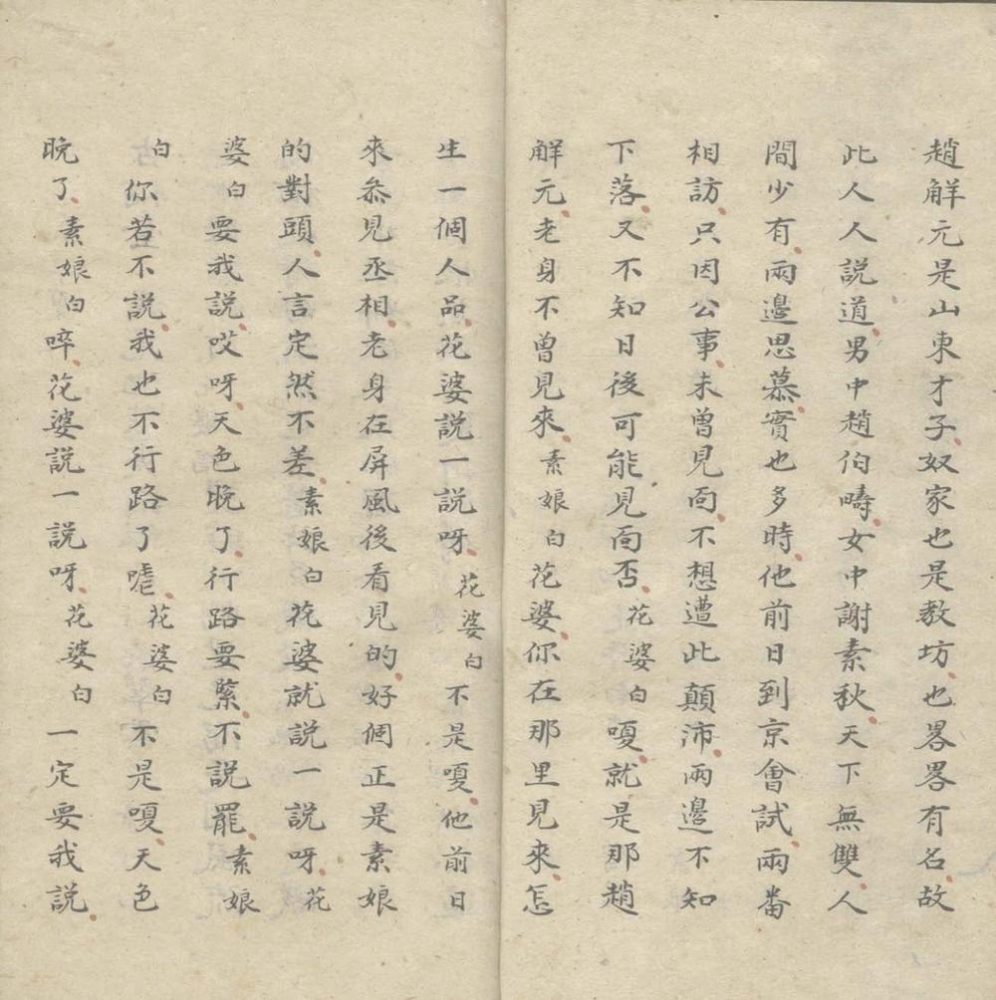 趙解元是山東才子奴家也是教坊也畧畧有名故
此人人說道男中趙伯疇女中謝素秋天下無雙人
間少有兩邊思慕實也多時他前日到京會試兩番
相訪只因公事未曾見面不想遭此顛沛兩邊不知
下落又不知日後可能見面否花婆白嗄就是那趙
解元老身不曾見來素娘白花婆你在那里見來怎
生一個人品花婆說一說呀花婆白不是嗄他前日
來叅見丞相老身在屏風後看見的好個正是素娘
的對頭人言定然不差素娘白花婆就說一說呀花
婆白要我說哎呀天色晚了行路要緊不說罷素娘
白你若不說我也不行路了嘘花婆白不是嗄天色
晚了素娘白啐花婆說一說呀花婆白一定要我說